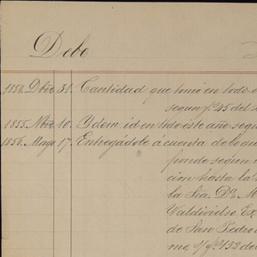 Debe
1854. Dbre 31. Cantidad que tomó en todo
segun fº 45 del
1855. Nbre 10. Ydem id en todo este año segu
1856. Mayo 17. Entregádole á cuenta de lo que
ponde segun
cion hasta la
la Sra. Dª M
Valdivielso Ex
de San Pedro
me, s/ fº 152 de